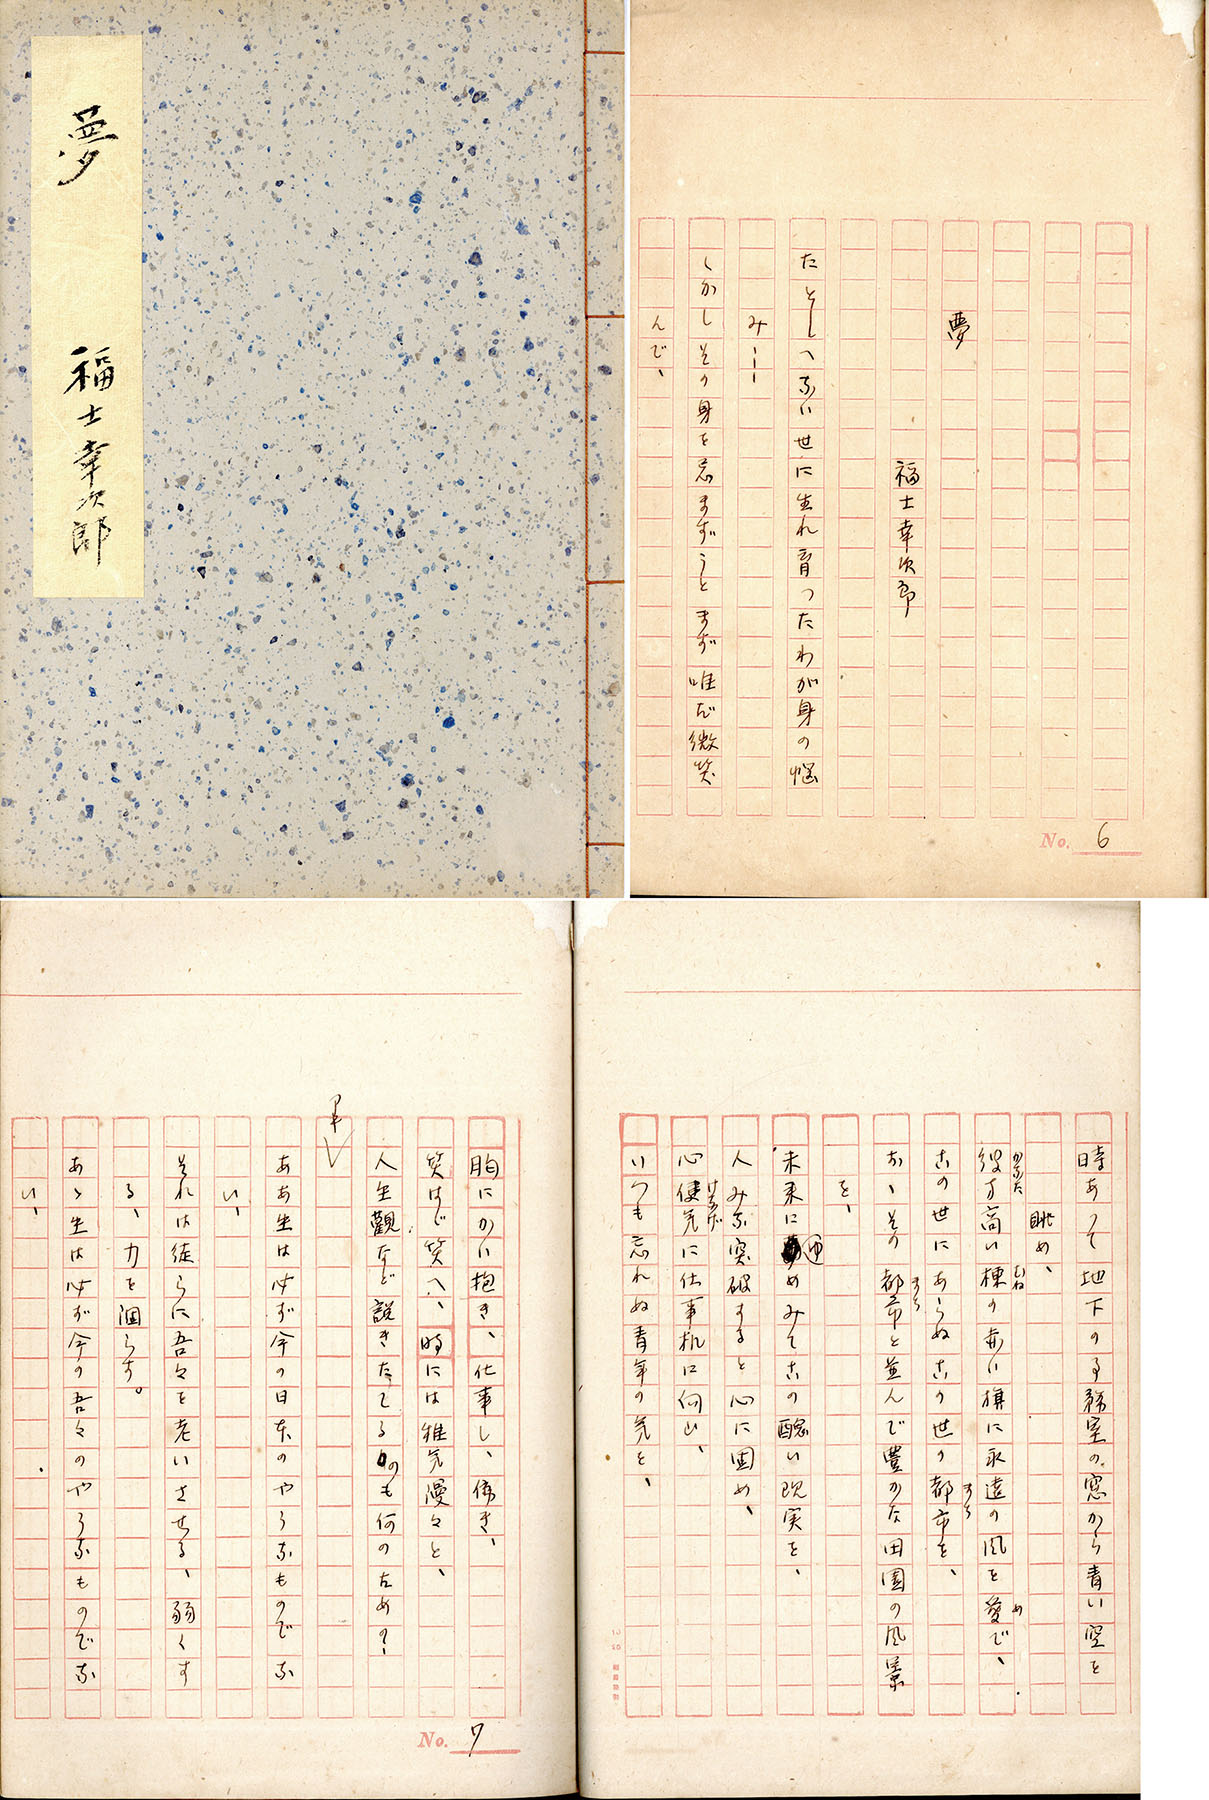 夢
福士幸次郎
夢
福士幸次郎
たとしへない世に生れ育つたわが身の悩
み――
しかしその身を忘まずうとまず唯だ微笑
んで、
No. 6
時あつて地下の事務室の窓から青い空を
眺め、
彼方高い棟の赤い旗に永遠の風を愛で、
かなた
むね
め
この世にあらぬこの世の都市を、
まち
あゝその都市と並んで豊かな田園の風景
まち
を、
未来にゆめみてこの醜い現実を、
人みな突破すると心に固め、
心健気に仕事机に向ひ、
けなげ
いつも忘れぬ青年の気を、
胸にかい抱き、仕事し、働き、
笑はゞ笑へ、時には稚気漫々と、
人生觀など説きたてるのも何のための!
あゝ生は必ず今の日本のやうなものでな
い、
それは徒らに吾々を老いさせる、弱くす
る、力を涸らす。
あゝ生は必ず今の吾々のやうなものでな
い、
No. 7